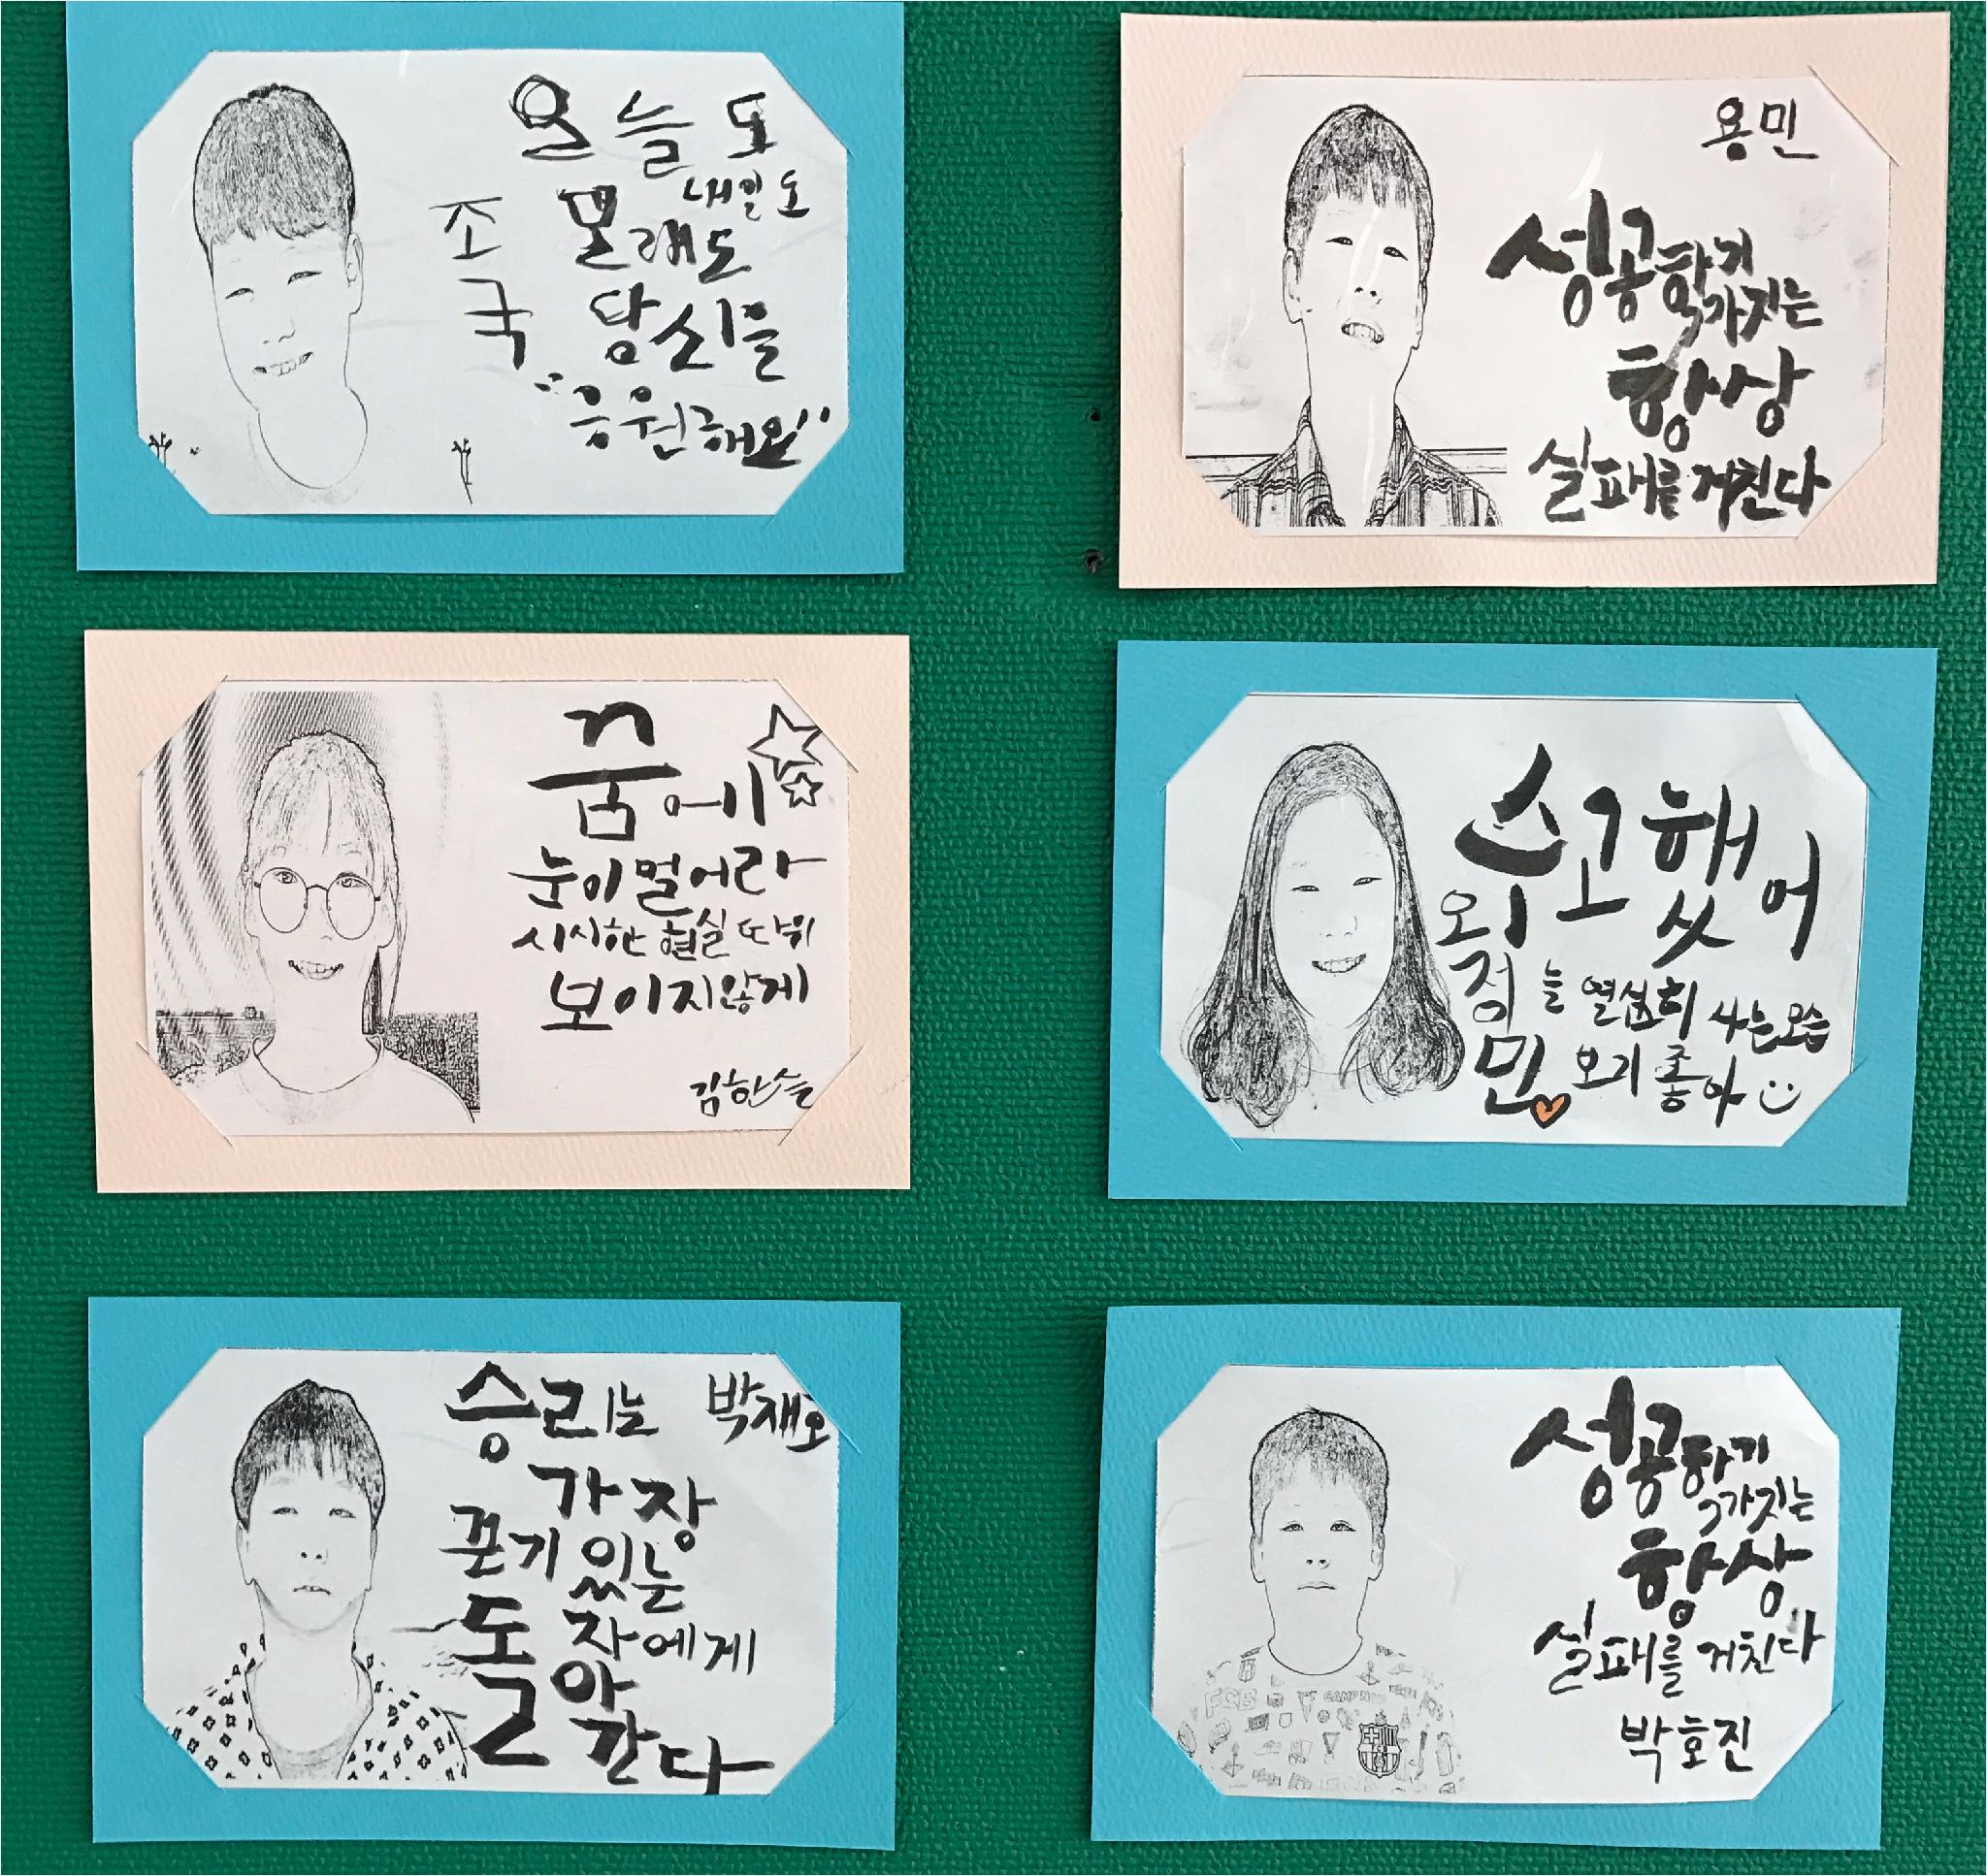 오늘도
내일도
모래도
당신을
"응원해요"
조국
용민
성공하기
까지는
항상
실패를 거친다
꿈에
눈이 멀어라
시시한 현실 따위
보이지않게
김한슬
수고했어
위정민
늘 열심히 사는 모습
보기 좋아
승리는
박재오
가장
끈기 있는
자에게
돌아
간다
성공하기
까지는
항상
실패를 거친다
박호진